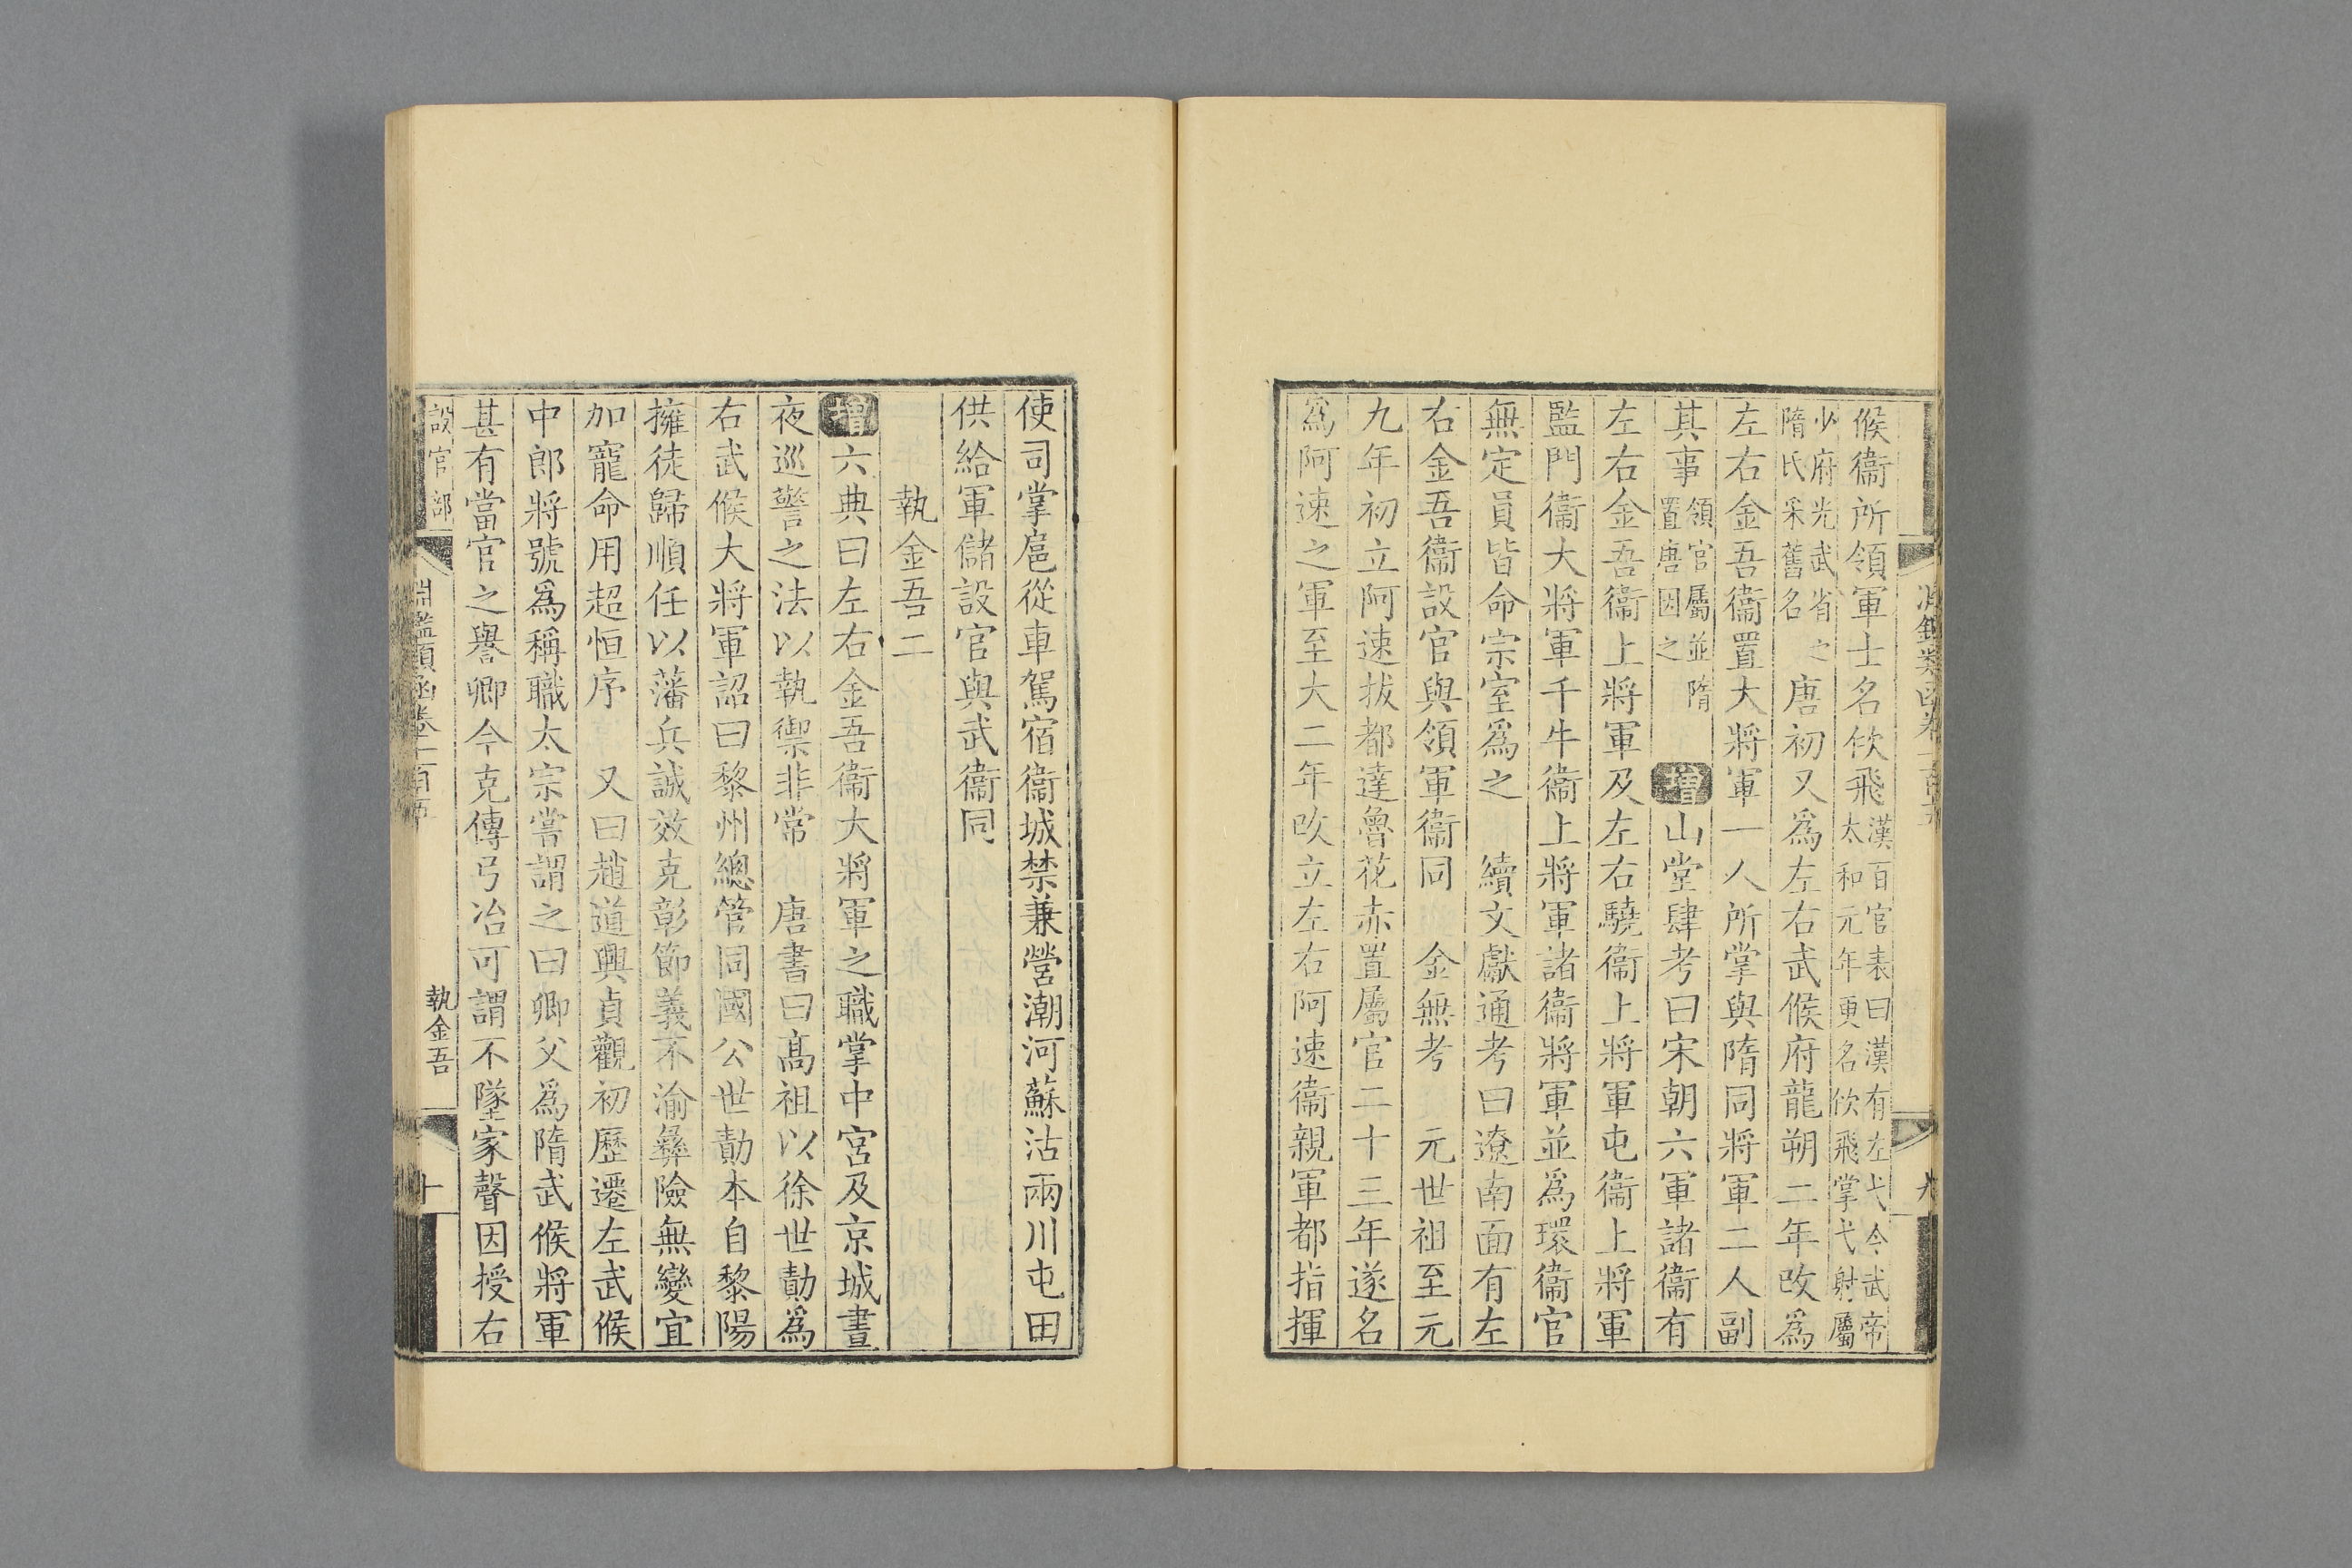 候衞所領軍士名佽飛漢百官表曰漢有左弋令武帝太和元年更名佽飛掌弋射屬
少府光武省之隋氏采舊名唐初又爲左右武候府龍朔二年攺爲
左右金吾衞置大將軍一人所掌與隋同將軍二人副
其事領官屬並隋置唐因之增山堂肆考曰宋朝六軍諸衞有
左右金吾衞上將軍及左右驍衞上將軍屯衞上將軍
監門衞大將軍千牛衞上將軍諸衞將軍並爲環衞官
無定員皆命宗室爲之 續文獻通考曰遼南面有左
右金吾衞設官與領軍衞同 金無考 元世祖至元
九年初立阿速拔都達魯花赤置屬官二十三年遂名
爲阿速之軍至大二年攺立左右阿速衞親軍都指揮
使司掌扈從車駕宿衞城禁兼營潮河蘇沽兩川屯田
供給軍儲設官與武衞同
執金吾二
增六典曰左右金吾衞大將軍之職掌中宮及京城晝
夜巡警之法以執禦非常 唐書曰高祖以徐世勣爲
右武候大將軍詔曰黎州總管同國公世勣本自黎陽
擁徒歸順任以藩兵誠效克彰節義不渝彝險無變宜
加寵命用超恒序 又曰趙道興貞觀初歷遷左武候
中郎將號爲稱職太宗嘗謂之曰卿父爲隋武候將軍
甚有當官之譽卿今克傳弓冶可謂不墜家聲因授右
設官部 淵鑑類函卷一百五 執金吾 十